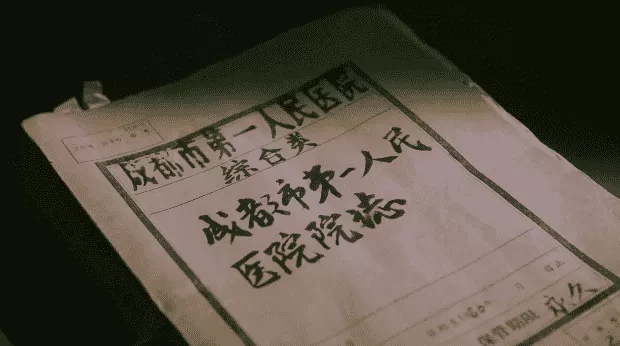 成都市第一人民医院
综合类
成都市第一人民
医院院志
月 日止
保管期限 永久